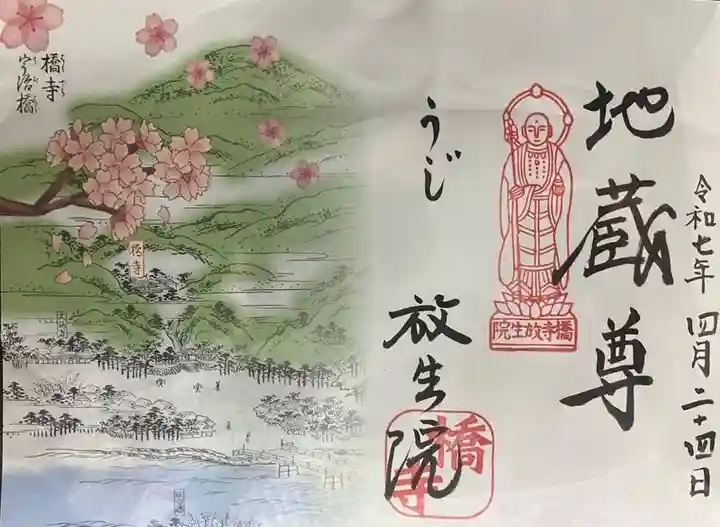 令和七年 四月二十四日
地蔵尊
橋寺放生院
うじ
放生院
橋寺
橋寺
宇治橋
橋寺